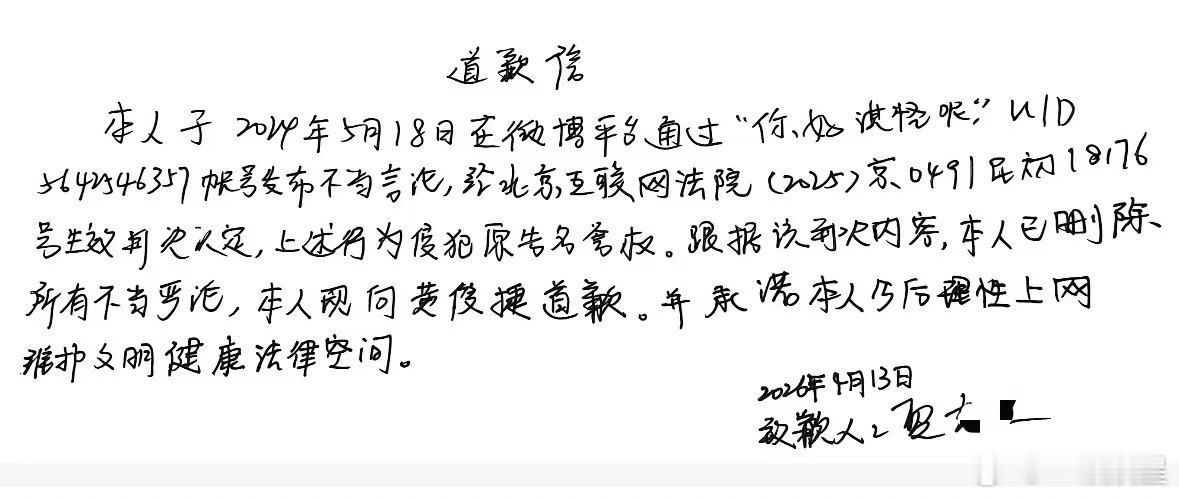 道歉信
本人于2024年5月18日在微博平台通过“你好淇怪呢”UID
5642546357帐号发布不当言论,经北京互联网法院(2025)京0491民初18176
号生效判决认定,上述行为侵犯原告名誉权。跟据该判决内容,本人已删除
所有不当言论,本人现向黄俊捷道歉。并承诺本人今后理性上网
维护文明健康法律空间。
2026年4月13日
致歉人: